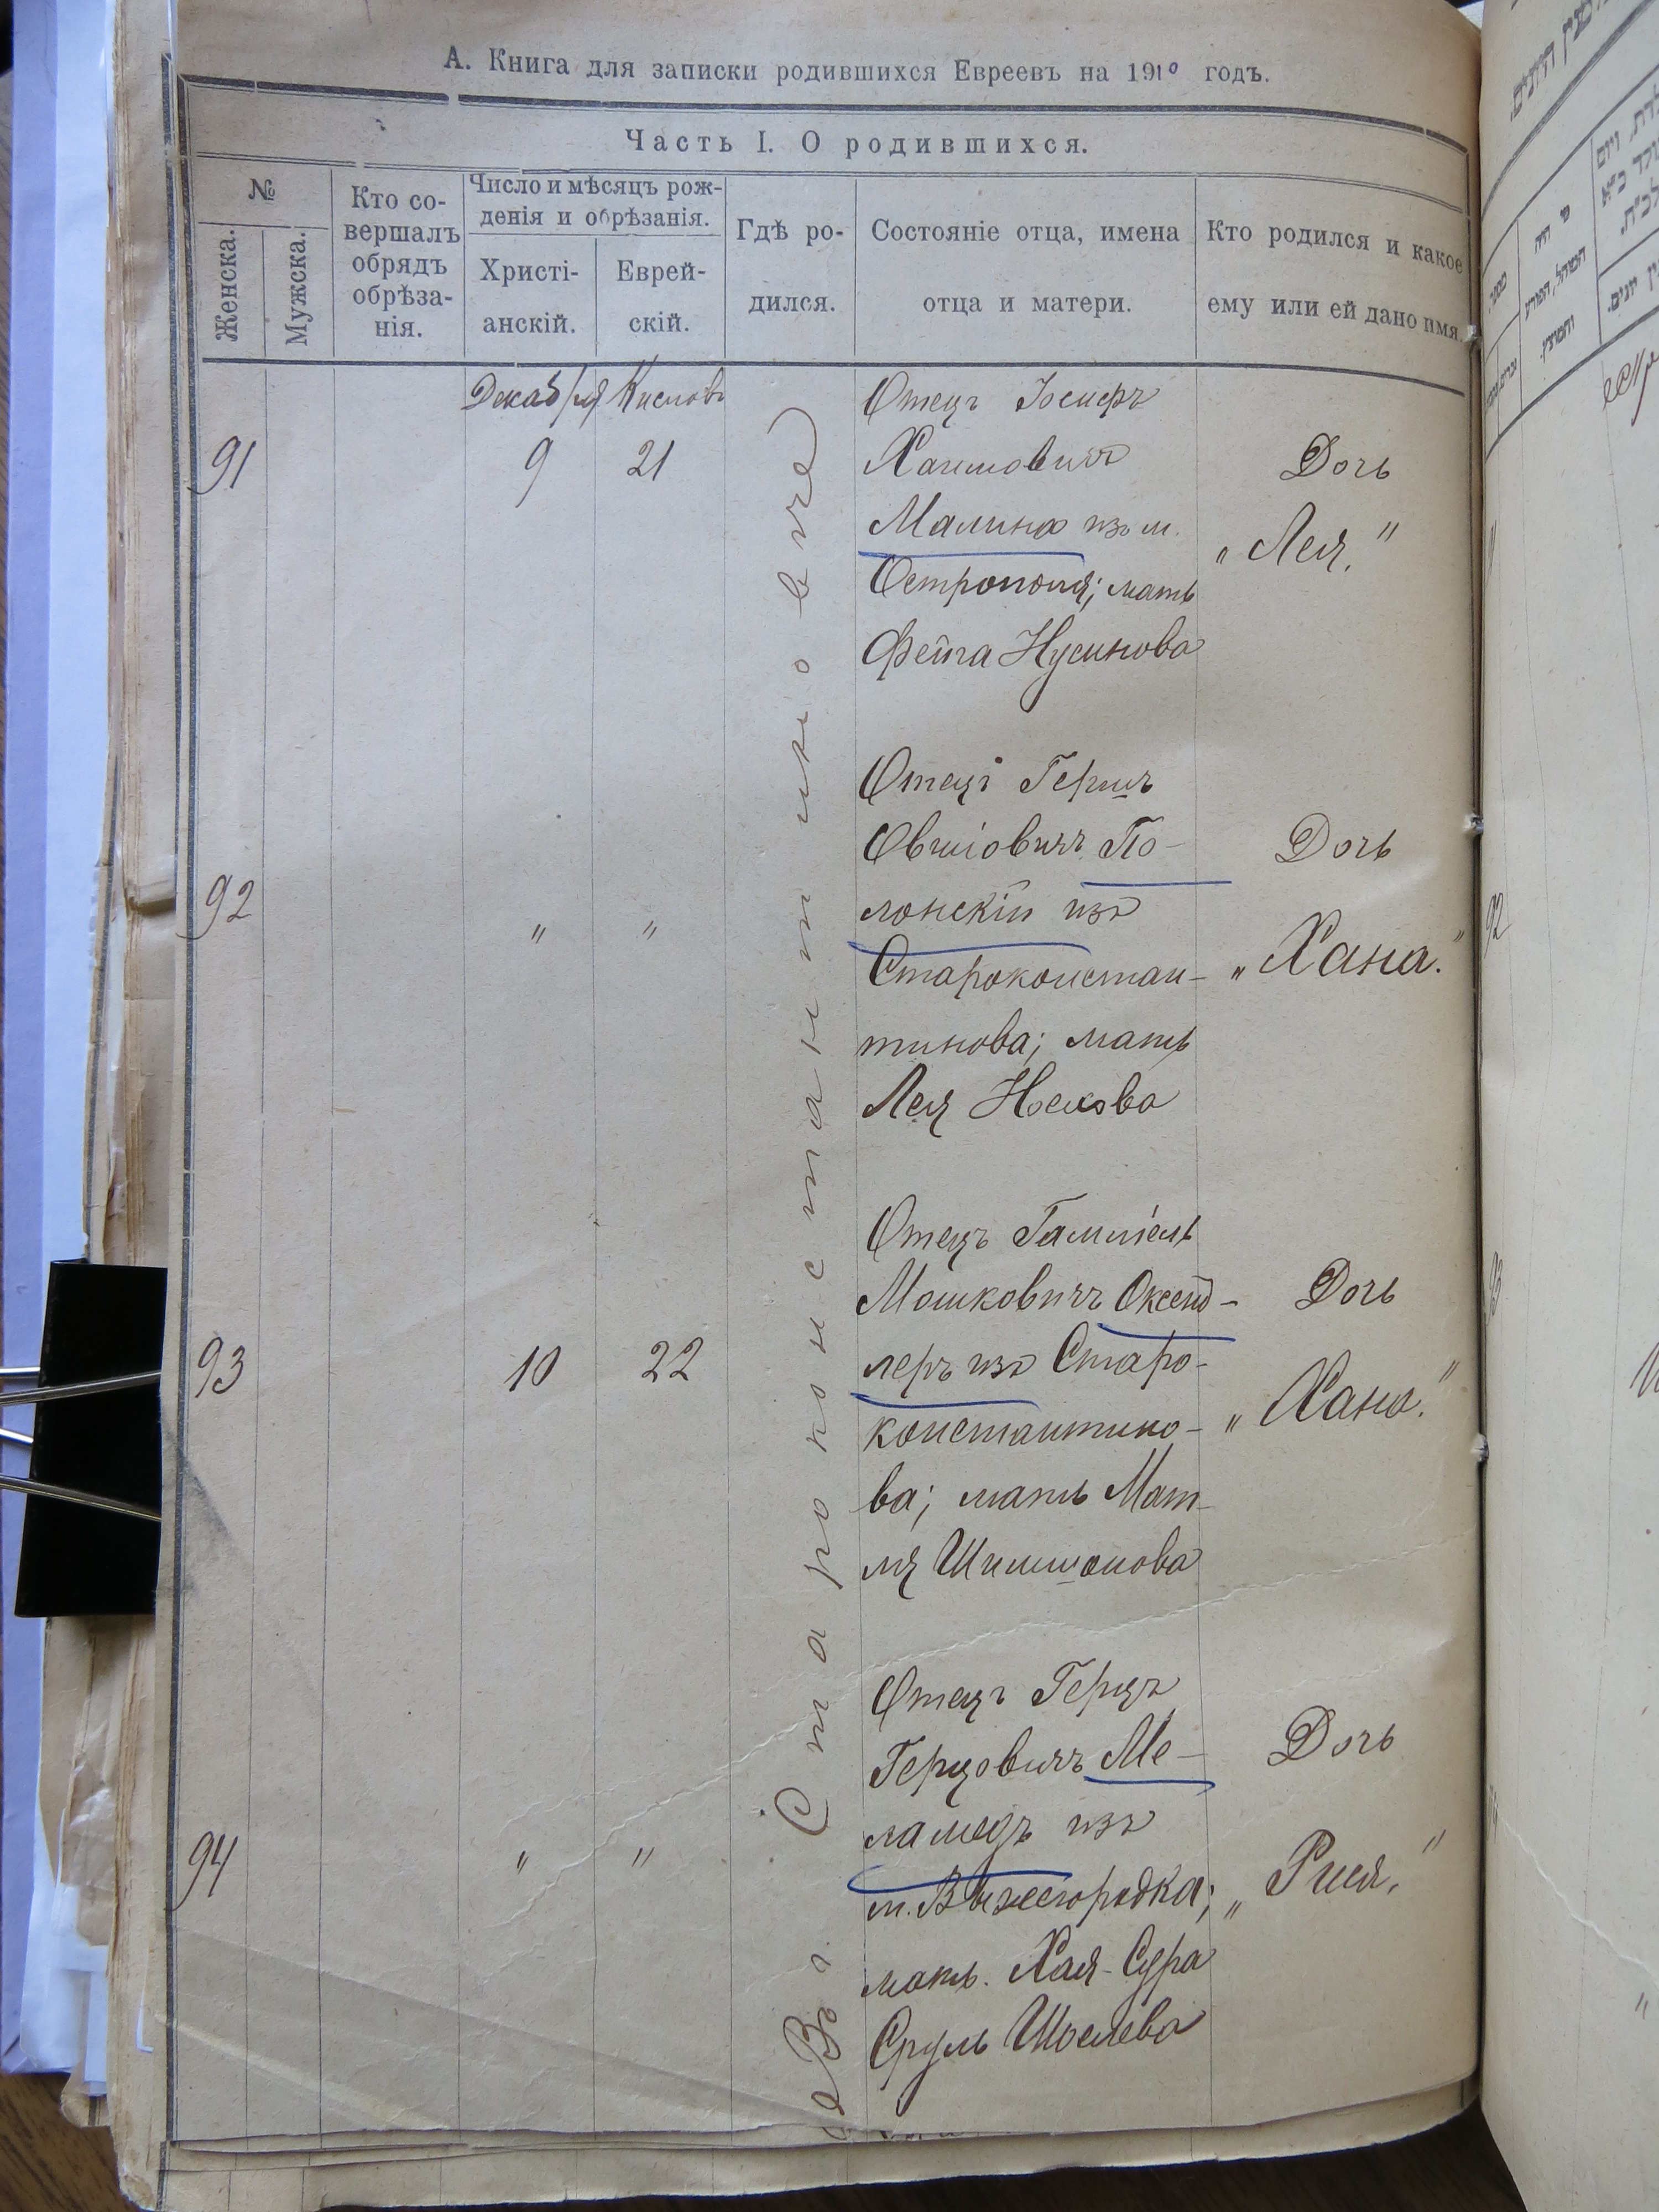 А. Книга для записки родившихся Евреевъ на 1910 годъ.
Часть I. О родившихся.
№
Женска.
Мужска.
Кто со-
вершалъ
обрядъ
обрѣза-
нія.
Число и мѣсяцъ рож-
денія и обрѣзанія.
Христі-
анскій.
Еврей-
скій.
Гдѣ ро-
дился.
Состояніе отца, имена
отца и матери.
Кто родился и какое
ему или ей дано имя.
Декабря Кислевъ
Въ г. Староконстантиновѣ
91
9
21
Отецъ Іосифъ
Хаимовичъ
Малина изъ м.
Острополя; мать
Фейга Нусинова
Дочь
„Лея."
92
" "
Отецъ Гершъ
Овшіовичъ По-
лонскій изъ
Староконстан-
тинова; мать
Лея Носкова
Дочь
„Хана."
93
10
22
Отецъ Гамліель
Мошковичъ Оксенд-
леръ изъ Старо-
константино-
ва; мать Мат-
ля Шимшонова
Дочь
„Хана."
94
" "
Отецъ Герцъ
Герцовичъ Ме-
ламедъ изъ
м. Вышегородка;
мать Хая-Сура
Сруль Шоелева
Дочь
„Рися."
92
93